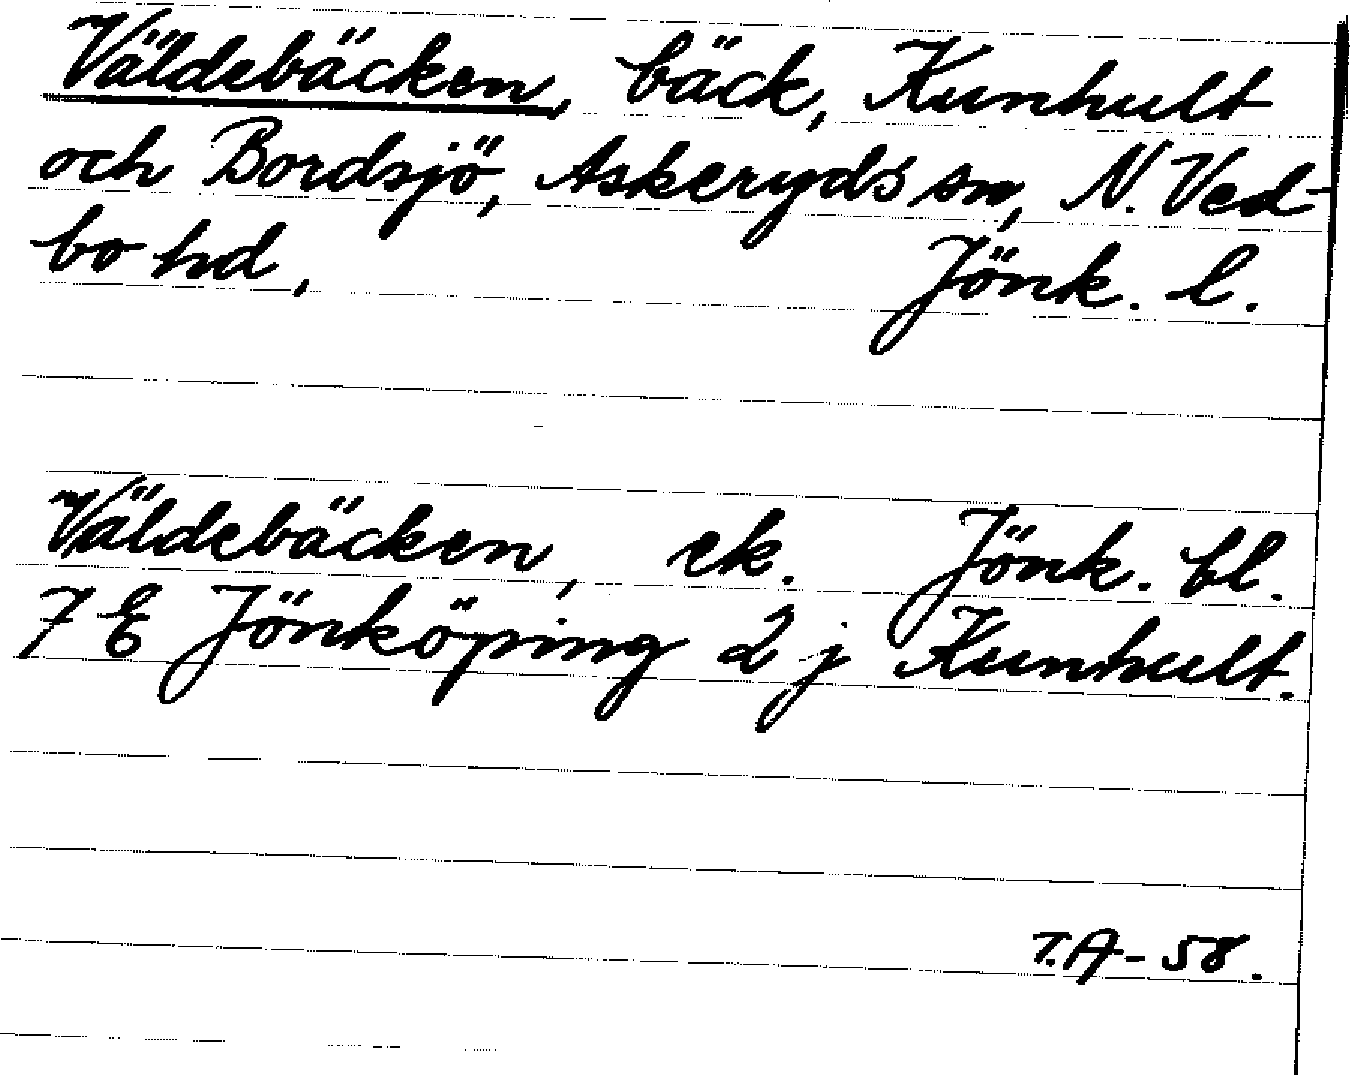 Väldebäcken, bäck, Kunhult
och Bordsjö, Askeryds sn, N. Ved-
bo hd, Jönk. l.
Väldebäcken, ek. Jönk. bl.
7 E Jönköping 2 j Kunhult.
T.A - 58.